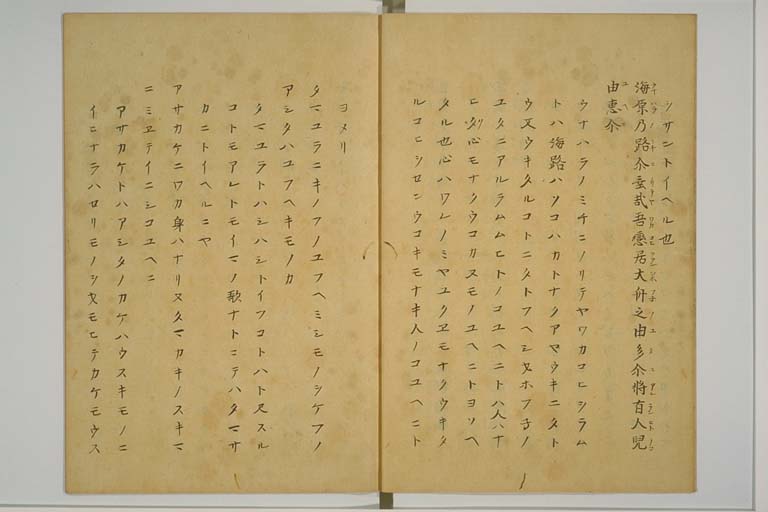 ウサントイヘル也
海原乃路尓乗哉吾恋居大舟之由多尓将有人児
由恵尓
ウナハラノミチニノリテヤワカコヒシラム
トハ海路ハソコハカトナクアヤウキニタト
ヘ又ウキタルコトニタトフヘシ大ホフ子ノ
ユタニアルラムムヒトノコユヘニトハ人ハナ
ニ心モナクウコカヌモノユヘニトヨソヘ
タル也心ハワレノミヤユクヱモナクウキタ
ルコヒシセンウコキモナキ人ノコユヘニト
ヨメリ
タマユラニキノフノユフヘミシモノシケフノ
アシタハユフヘキモノカ
タマユラトハシハシトイフコトハト見スル
コトモアレトモイマノ歌ナトニテハタマサ
カニトイヘルニヤ
アサカケニワカ身ハナリヌタマカキノスキマ
ニミヱテイニシコユヘニ
アサカケトハアシタノカケハウスキモノニ
イヒナラハセリモノシ